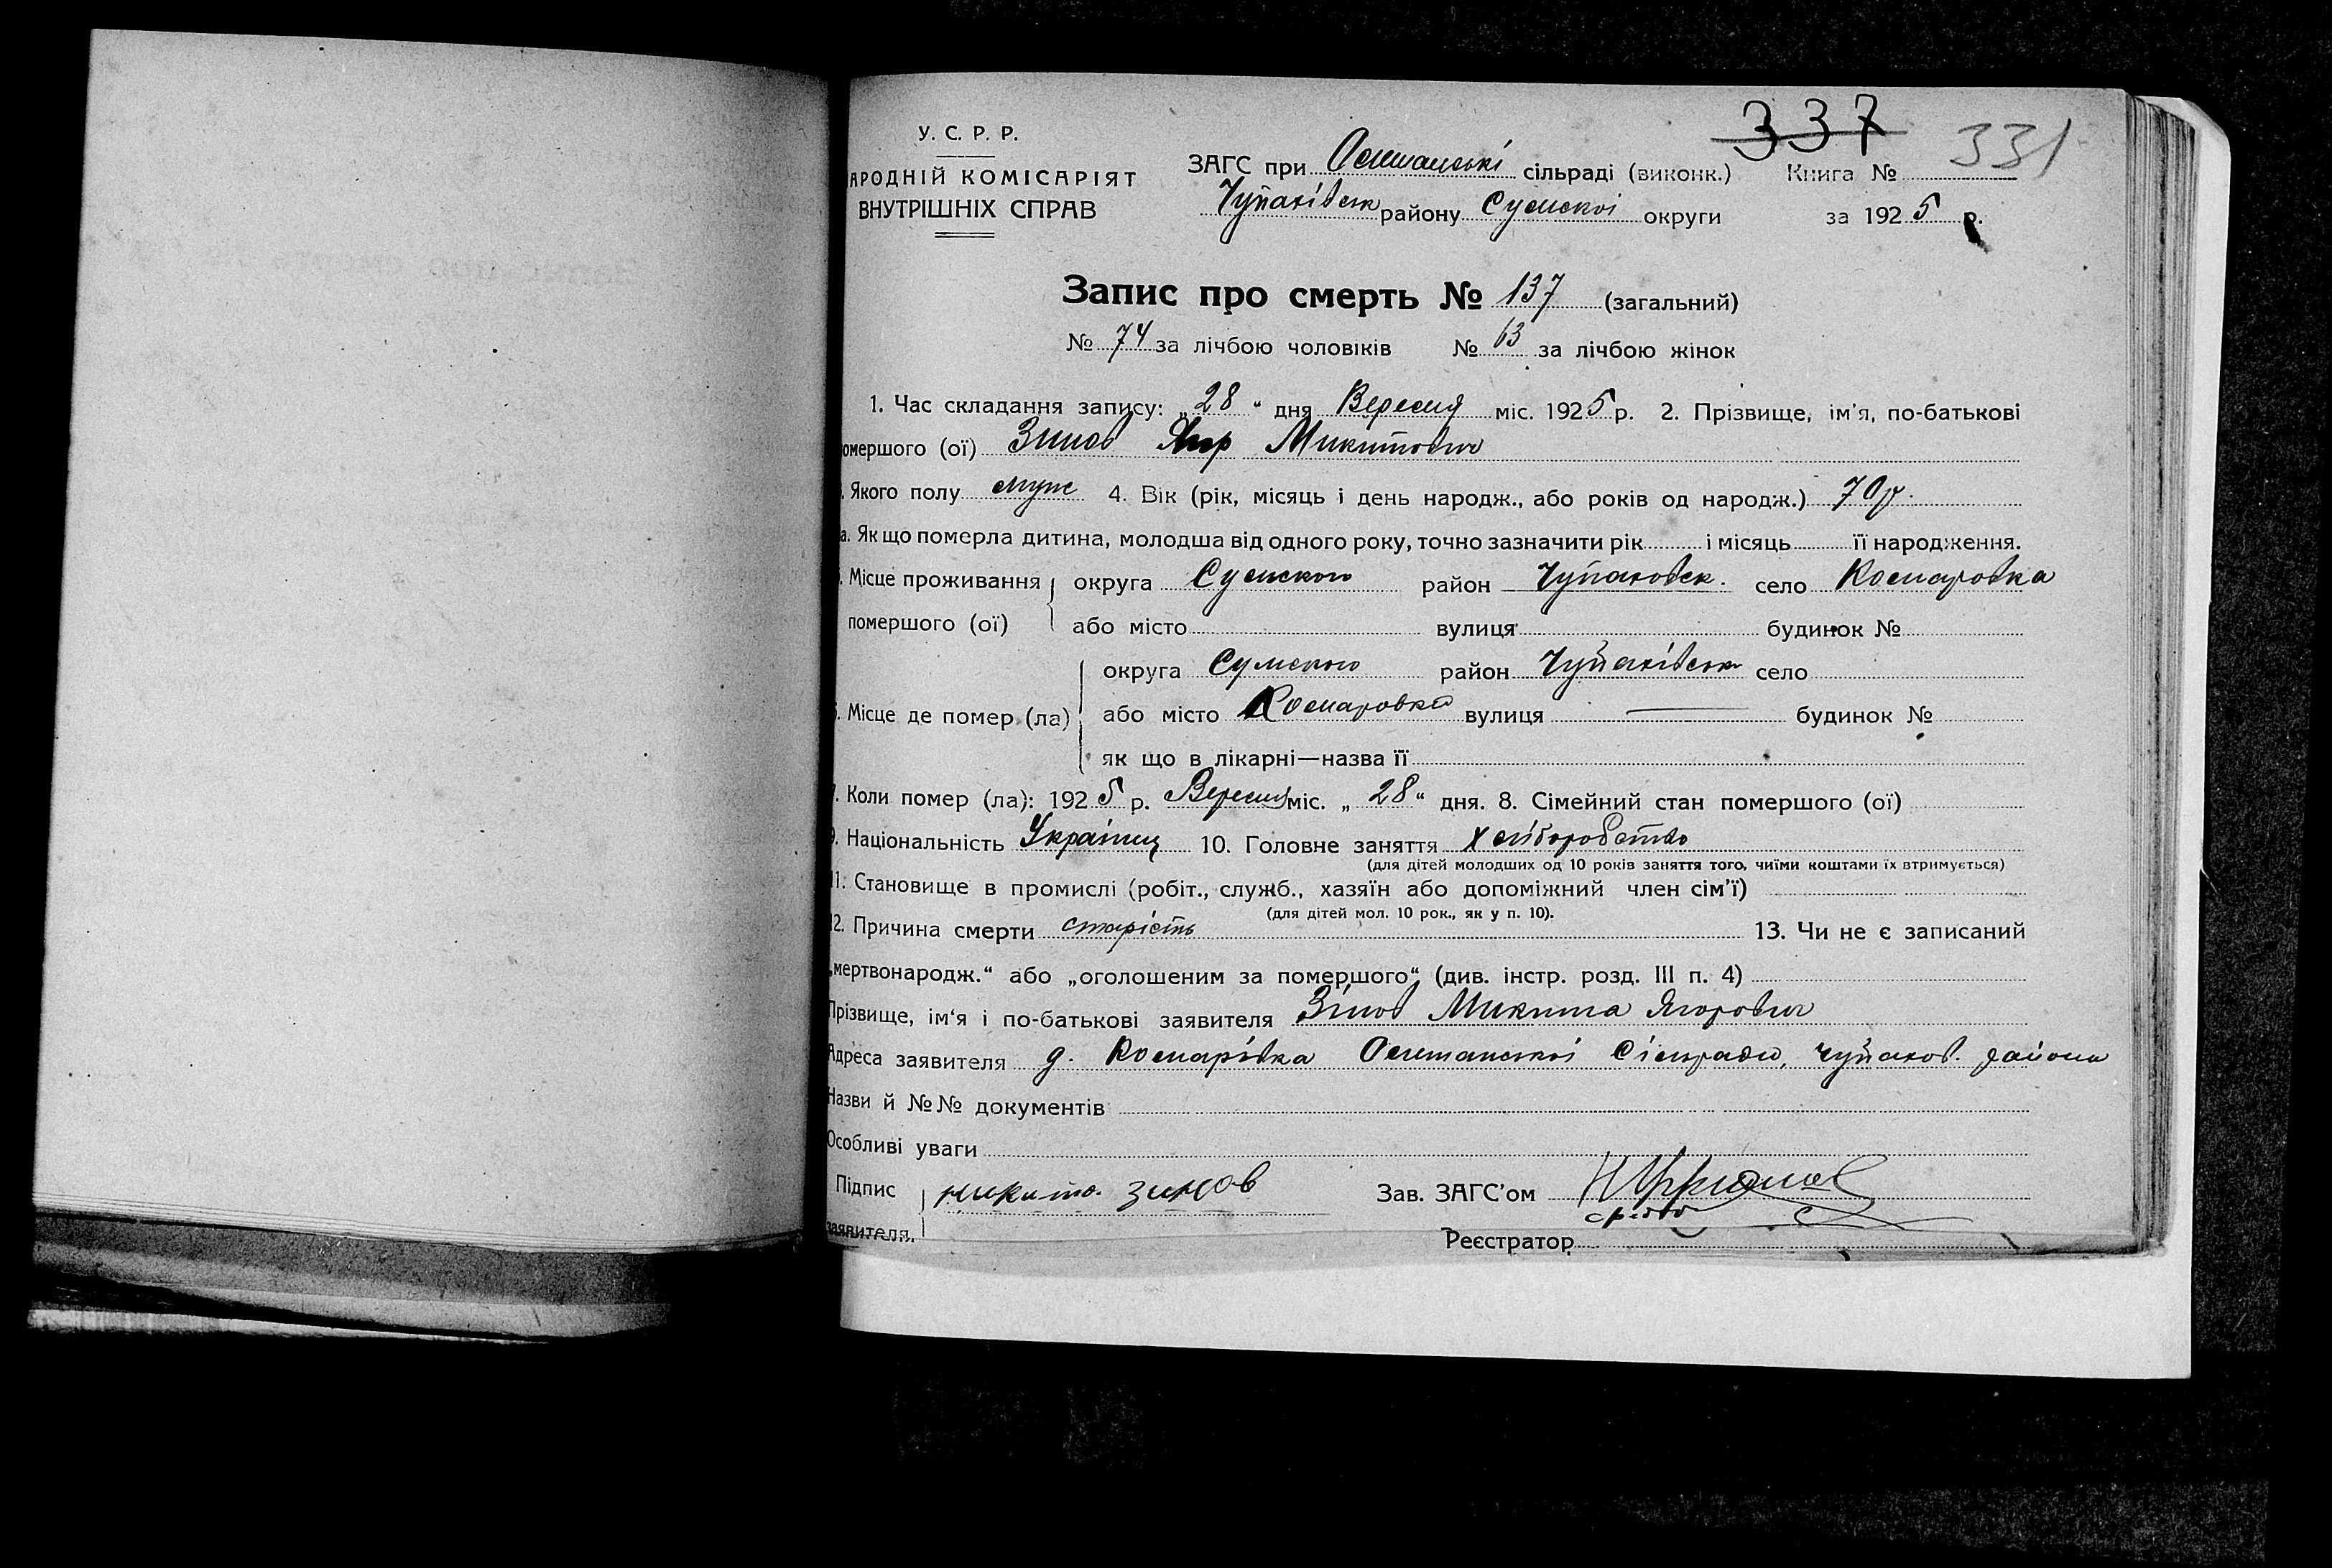 337 331
У. С. Р. Р.
АРОДНІЙ КОМІСАРІЯТ
ВНУТРІШНІХ СПРАВ
ЗАГС при сільраді (виконк.) Книга №
Чупаківськ району Сумскої округи за 1925 р.
Запис про смерть № 137 (загальний)
№ 74 за лічбою чоловіків № 63 за лічбою жінок
1. Час складання запису: „28“ дня Вересня міс. 1925 р. 2. Прізвище, ім'я, по-батькові
омершого (ої) Зинов Микитович
. Якого полу муж 4. Вік (рік, місяць і день народж., або років од народж.) 70 р.
а. Як що померла дитина, молодша від одного року, точно зазначити рік і місяць її народження.
. Місце проживання округа Сумского район Чупаковск. село Комаровка
помершого (ої) або місто вулиця будинок №
округа Сумского район Чупаківськ село
. Місце де помер (ла) або місто Комаровка вулиця — будинок №
як що в лікарні—назва її
. Коли помер (ла): 1925 р. Вересня міс. „28“ дня. 8. Сімейний стан помершого (ої)
9. Національність Українц 10. Головне заняття Хліборобство
(для дітей молодших од 10 років заняття того, чиїми коштами їх втримується)
11. Становище в промислі (робіт., служб., хазяїн або допоміжний член сім'ї)
(для дітей мол. 10 рок., як у п. 10).
12. Причина смерти старість 13. Чи не є записаний
„мертвонародж.“ або „оголошеним за помершого“ (див. інстр. розд. III п. 4)
Прізвище, ім'я і по-батькові заявителя Зінов Микита Ягорович
Адреса заявителя д. Комарівка Сільради, Чупаков. района
Назви й №№ документів
Особливі уваги
Підпис микита зинов Зав. ЗАГС'ом
заявителя.
Реєстратор